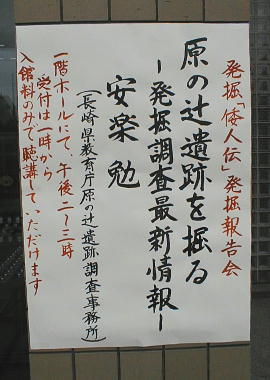 発掘「倭人伝」発掘報告会
原の辻遺跡を掘る
－発掘調査最新情報－
安楽勉
（長崎県教育庁原の辻遺跡調査事務所）
一階ホールにて、午後二～三時
受付は一時から
入館料のみで聴講していただけます